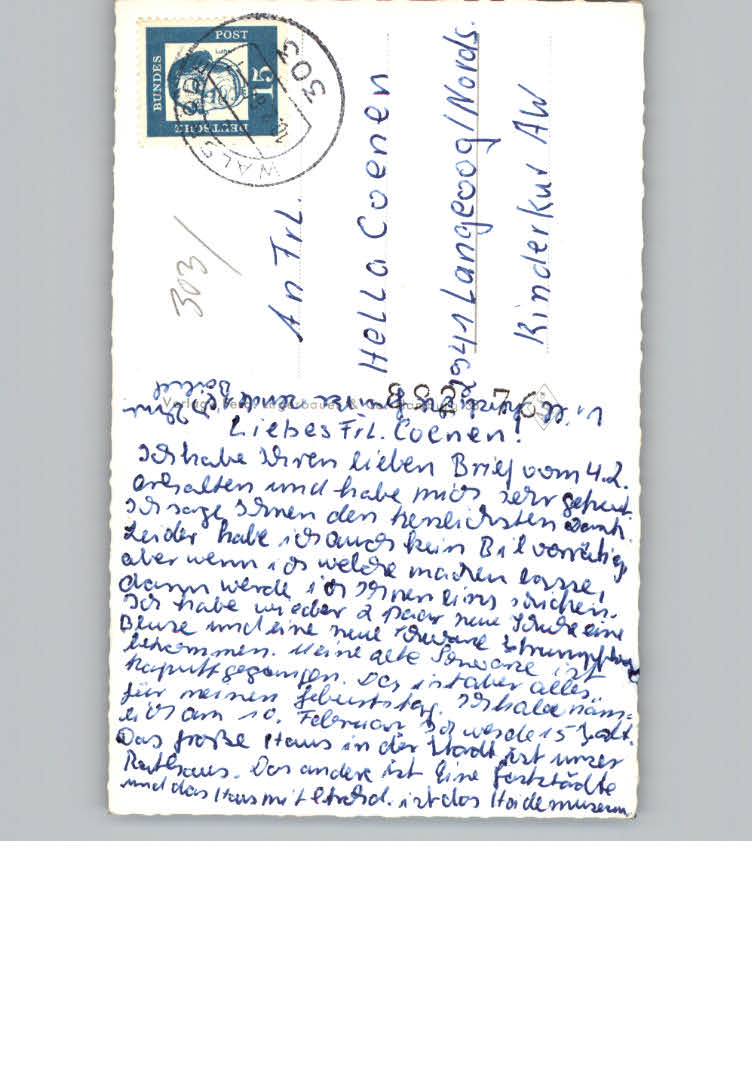 DEUTSCHE
BUNDES
POST
15
Luther
303
WALSRODE
303/
An Frl.
Hella Coenen
2941 Langeoog/Nords.
Kinderkur AW
882 76
Liebes Frl. Coenen!
Ich habe Ihren lieben Brief vom 4.2.
erhalten und habe mich sehr gefreut
Ich sage Ihnen den herzlichsten Dank.
Leider habe ich auch kein Bil vorrätig
aber wenn ich welche machen lasse,
dann werde ich Ihnen eins schicken.
Ich habe wieder 2 paar neue Schuhe eine
Bluse und eine neue schwarze Strumpfhose
bekommen. Meine alte Schwarze ist
kaputtgegangen. Das ist aber alles
für meinen Geburtstag. Ich habe näm-
lich am 10. Februar Ich werde 15 J. alt.
Das große Haus in der Stadt ist unser
Rathaus. Das andere ist eine Gaststädte
und das Haus mit Strohd. ist das Heidemuseum